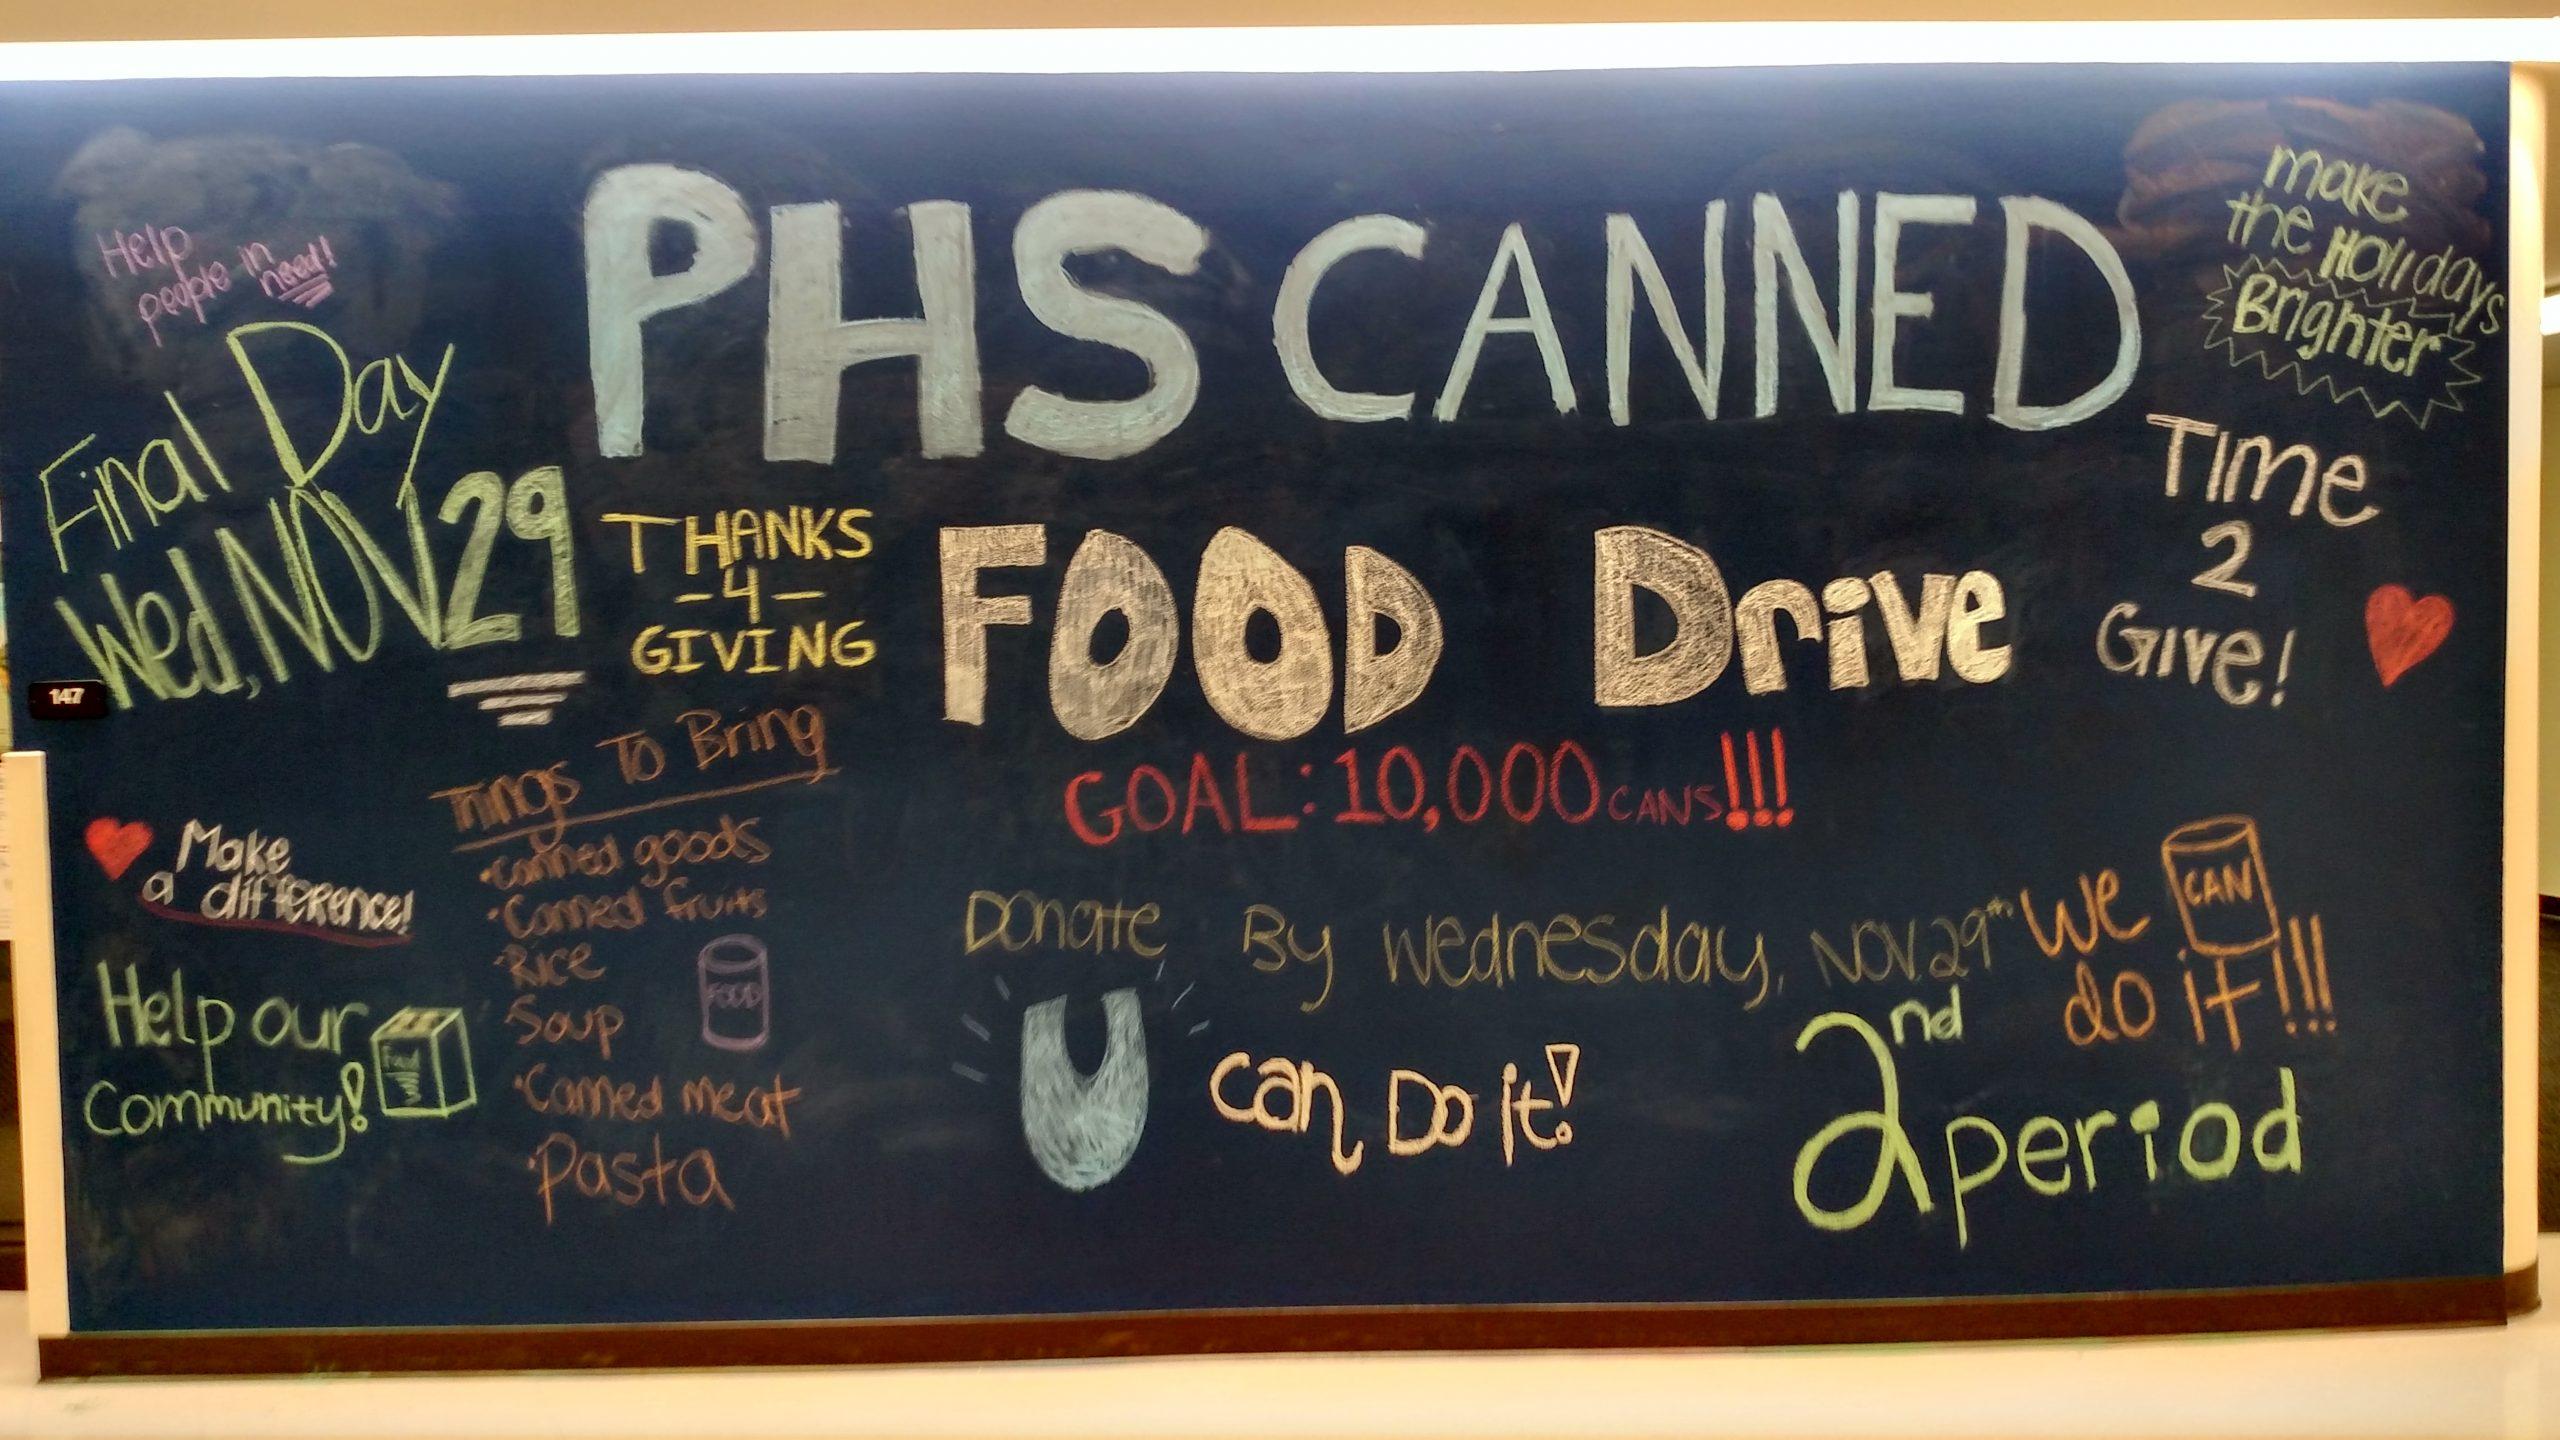 Help
people in
need!
PHS CANNED
make
the Holidays
Brighter
Final Day
Wed, NOV 29
THANKS
-4-
GIVING
FOOD Drive
TIME
2
GIVE!
147
GOAL: 10,000 CANS!!!
Things To Bring
•Canned goods
•Canned fruits
•Rice
•Soup
•Canned meat
•Pasta
FOOD
Make
a difference!
Help our
Community!
Food
Donate By Wednesday, NOV. 29th
We CAN
do it!!!
U can Do it!
2nd
period